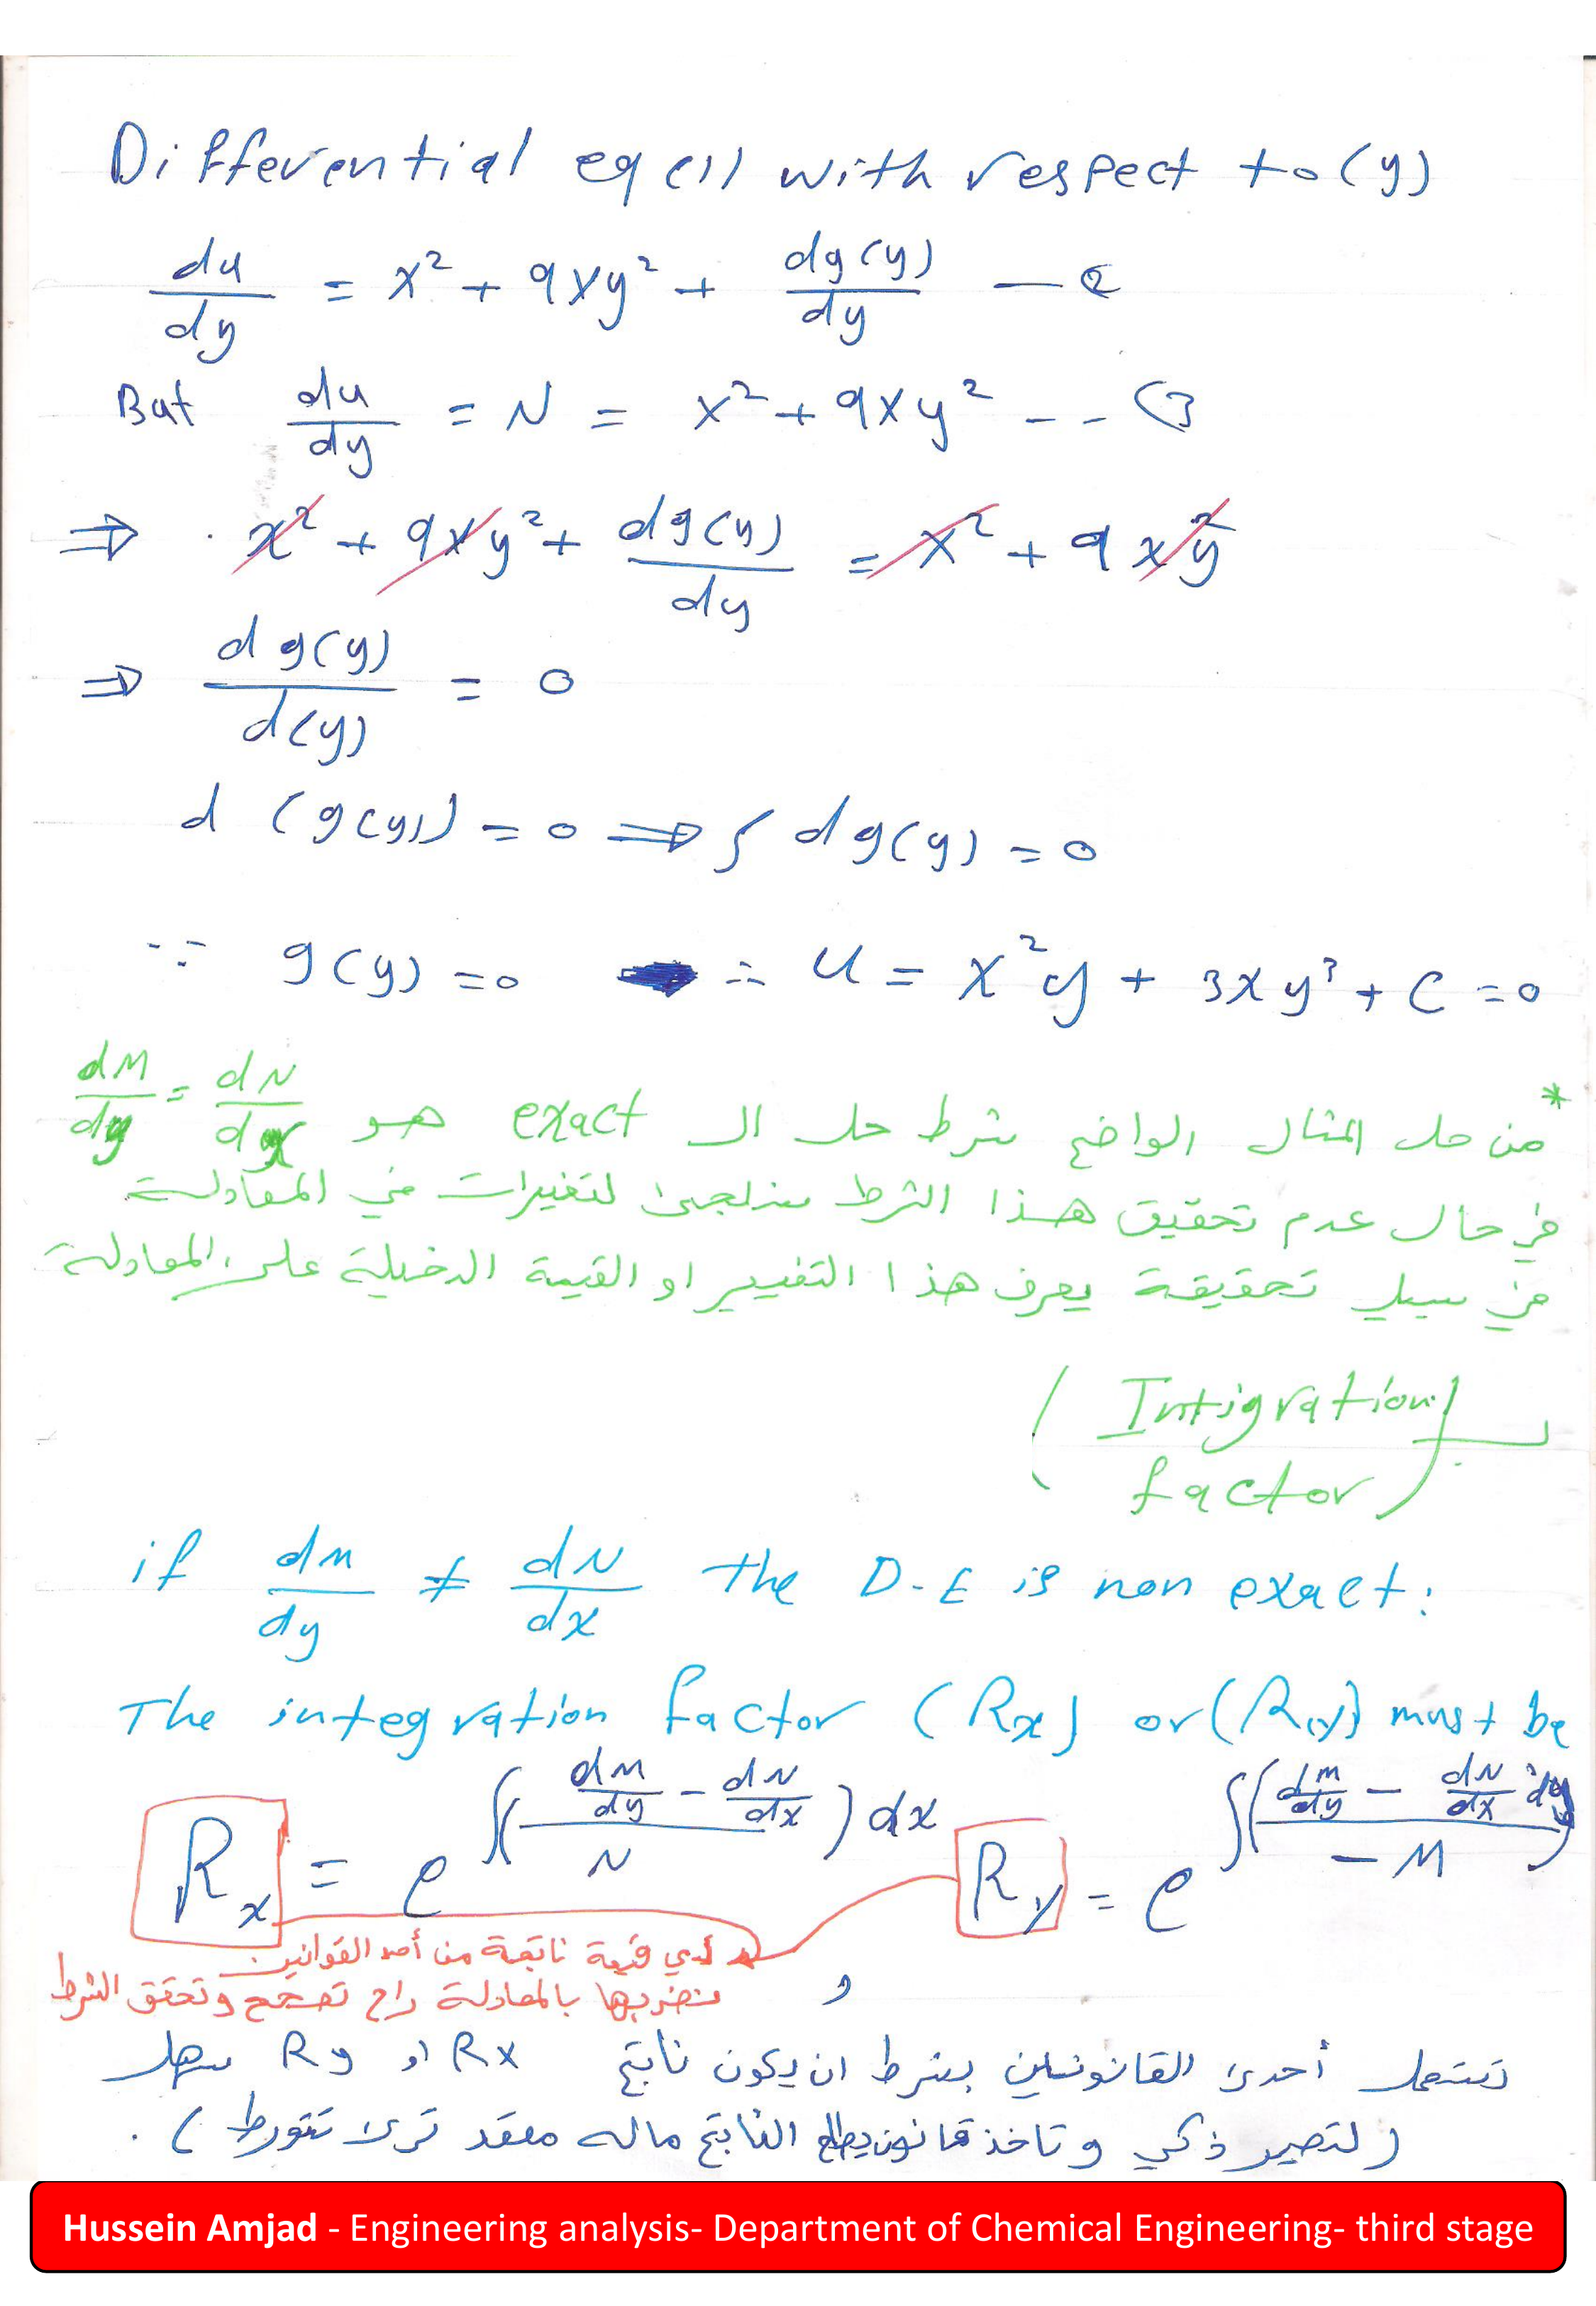 Differential eq (1) with respect to (y)
du/dy = x² + 9xy² + dg(y)/dy — (2
But du/dy = N = x² + 9xy² - - (3
⇒ x² + 9xy² + dg(y)/dy = x² + 9xy²
⇒ dg(y)/d(y) = 0
d (g(y)) = 0 ⇒ ∫ dg(y) = 0
∵ g(y) = 0 ∴ u = x²y + 3xy³ + C = 0
* من حل المثال الواضح شرط حل الـ exact هو dM/dy = dN/dx
في حال عدم تحقيق هذا الشرط سنلجئ لتغيرات في المعادلة
في سبيل تحقيقة يعرف هذا التغيير او القيمة الدخيلة على المعادلة
(Intigration
factor)
if dM/dy ≠ dN/dx the D-E is non exact:
The integration factor (Rx) or (Ry) must be
Rx = e^∫((dM/dy - dN/dx)/N) dx Ry = e^∫((dM/dy - dN/dx)/-M) dy
أي قيمة ناتجة من أحد القوانين
نضربها بالمعادلة راح تصحح وتحقق الشرط
و
تستعمل أحدى القانونين بشرط ان يكون ناتج Rx او Ry سهل
(لتصير ذكي وتاخذ قانون يطلع الناتج ماله معقد ترى تتورط).
Hussein Amjad - Engineering analysis- Department of Chemical Engineering- third stage